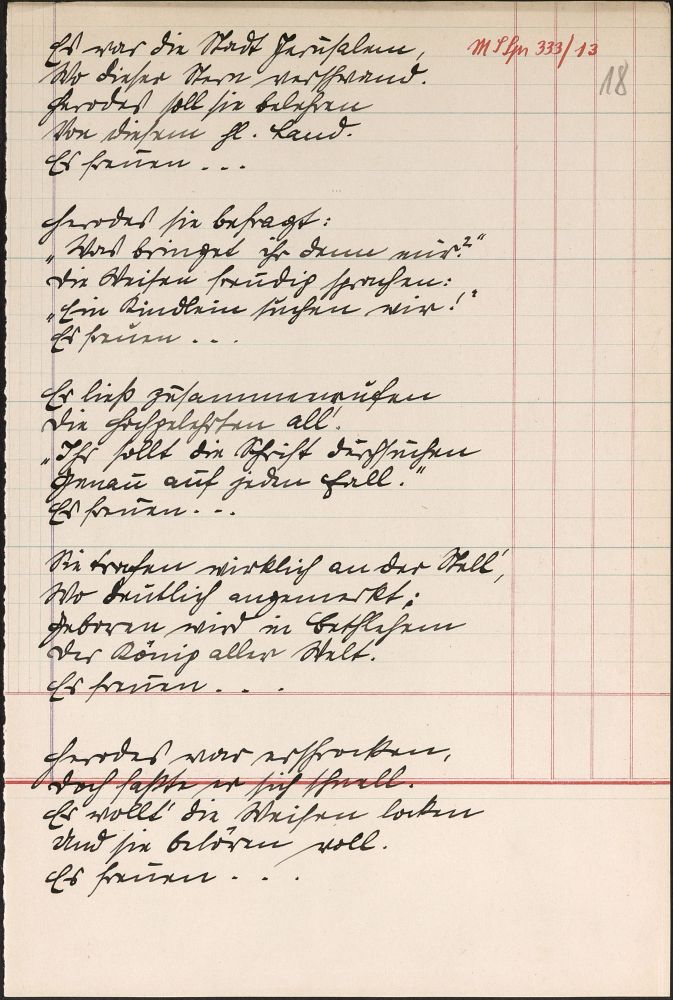 Es war die Stadt Jerusalem,
Wo dieser Stern verschwand.
Herodes soll sie belehren
Von diesem hl. Land.
Es freuen . . .
Herodes sie befragt:
„Was bringet ihr denn mir?“
Die Weisen freudig sprachen:
„Ein Kindlein suchen wir!“
Es freuen . . .
Er ließ zusammenrufen
Die Hochgelehrten all'.
„Ihr sollt die Schrift durchsuchen
Genau auf jeden Fall.“
Es freuen . . .
Sie trafen wirklich an der Stell',
Wo deutlich angemerkt:
Geboren wird in Bethlehem
Der König aller Welt.
Es freuen . . .
Herodes war erschrocken,
Doch faßte er sich schnell.
Er wollt' die Weisen locken
Und sie betören voll.
Es freuen . . .
333/13
18